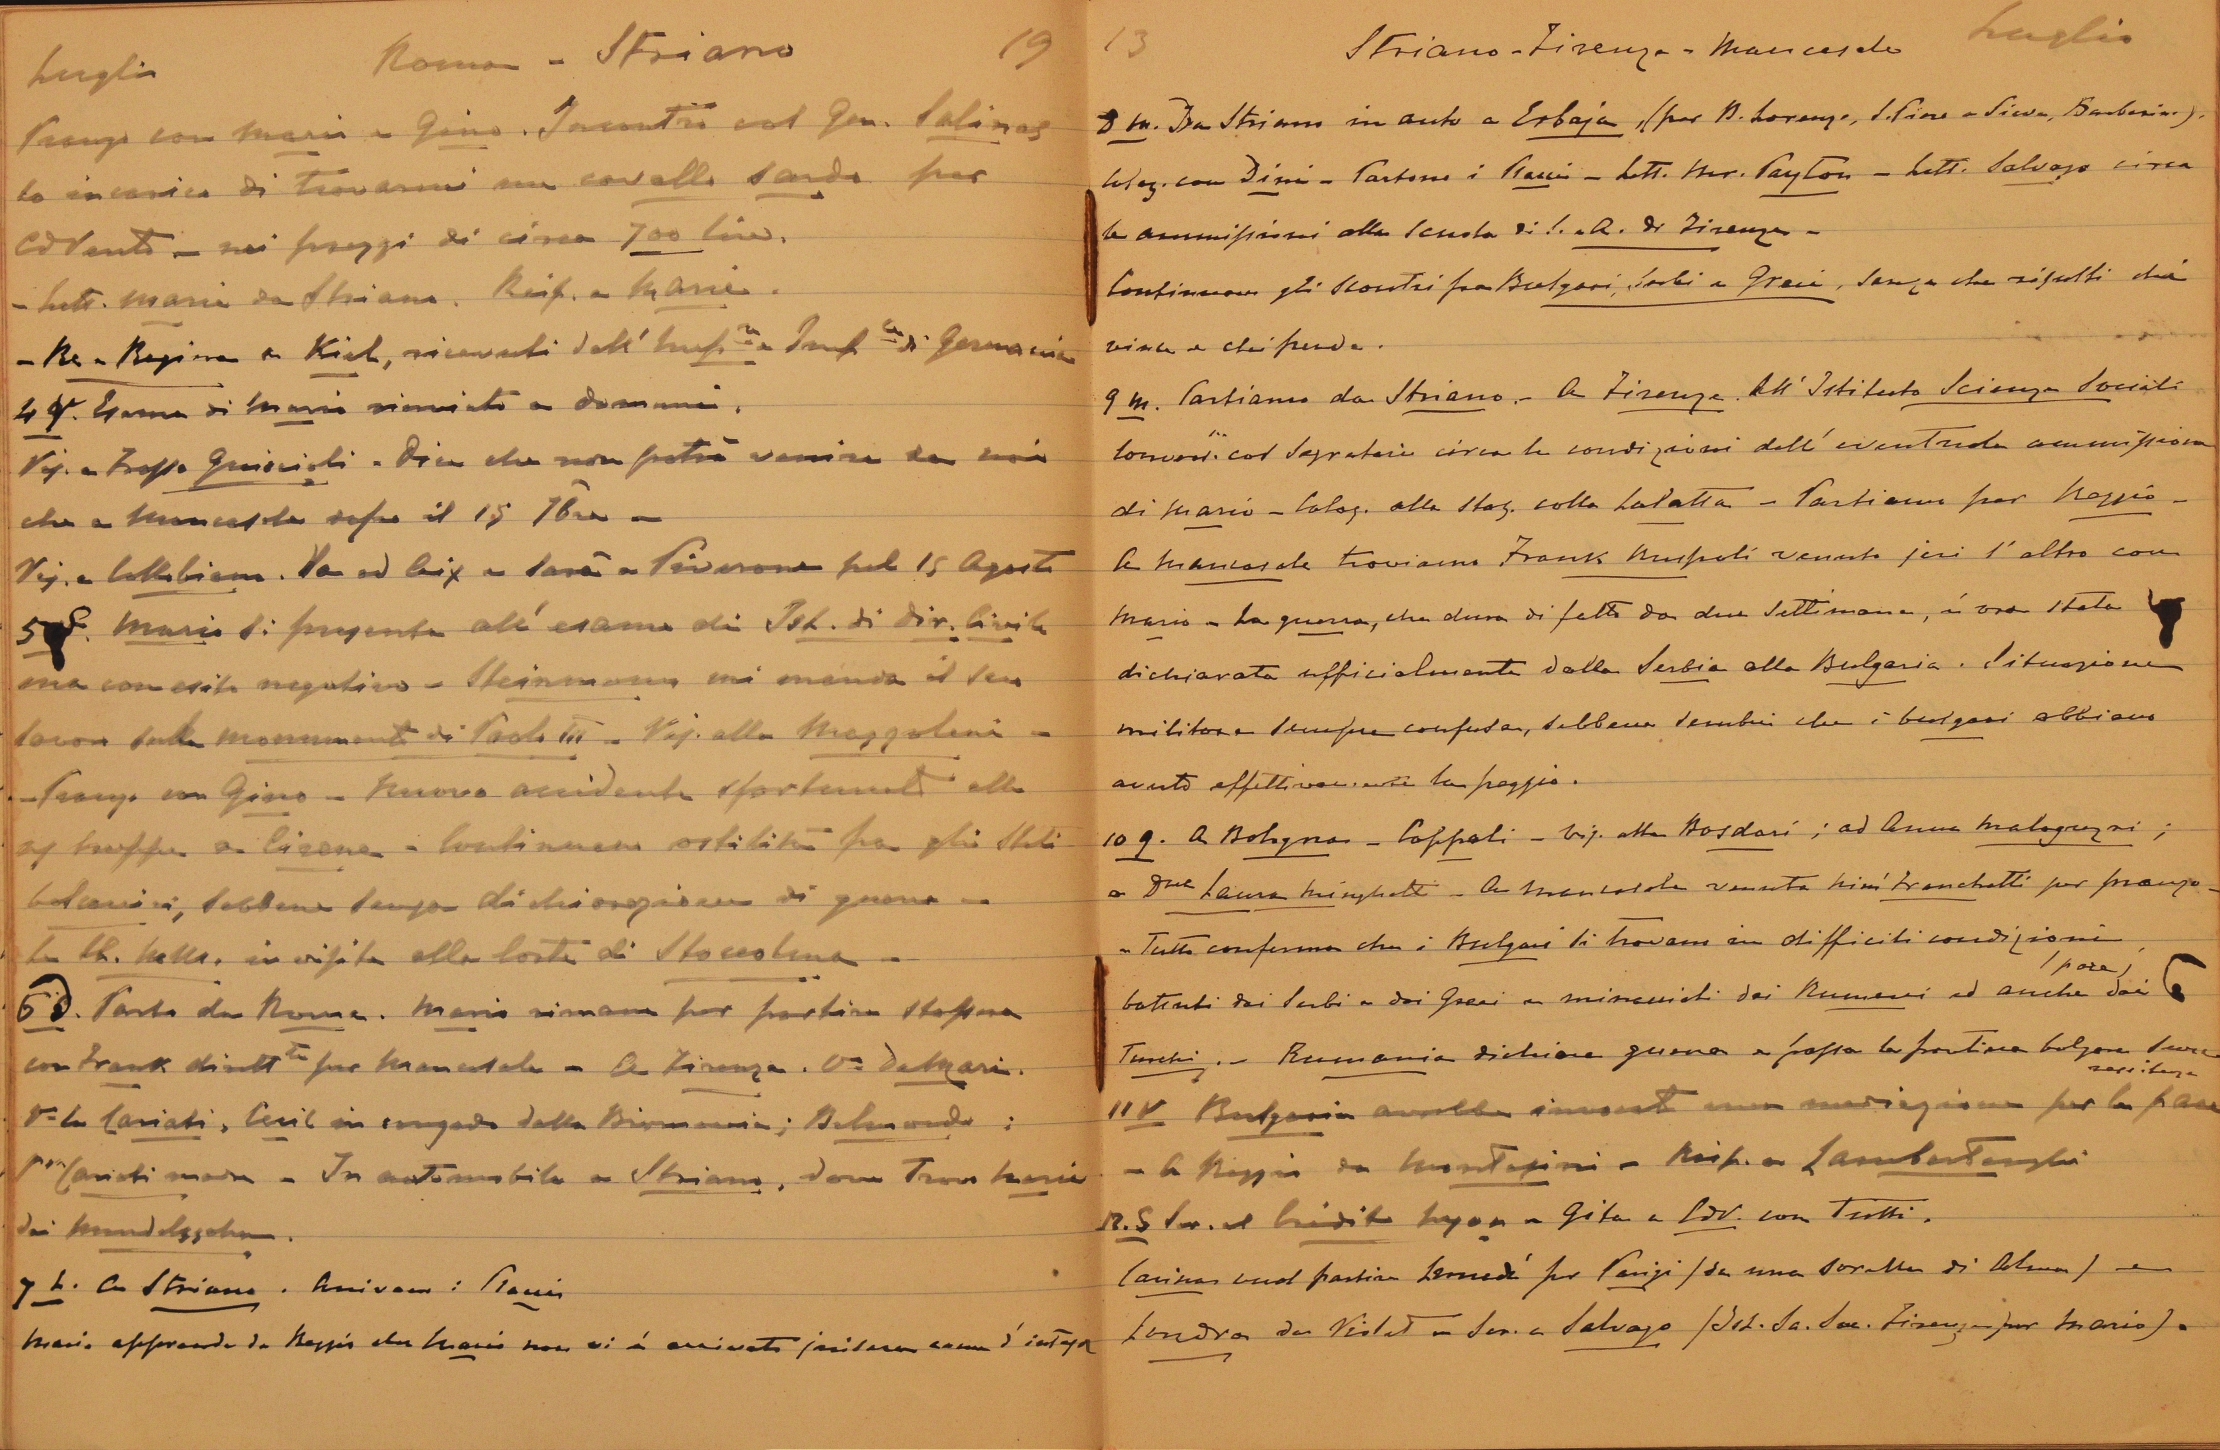 Luglio Roma - Striano 19
Pranzo con Mario e Gino. Incontro col Gen. Salinas
lo incarico di trovarmi un cavallo sardo per
CdVento - nei prezzi di circa 700 lire.
- Lett. Maria da Striano. Risp. a Maria.
- Re e Regina a Kiel, ricevuti dall' Imp.re e Imp.ce di Germania
4 V. Esame di Mario rinviato a domani.
Vis. a Guiccioli - Dice che non potrà venire da noi
che a Mancasale dopo il 15 7bre -
Vis. a . Va ad Aix e sarà a Piverone pel 15 Agosto
5 S. Mario si presenta all' esame di Ist. di Dir. Civile
ma con esito negativo - Steinmann mi manda il suo
lavoro sul monumento di Paolo III - Vis. alla Mazzoleni -
- Pranzo con Gino - Nuovo accidente sfortunato alle
ns truppe a Cirene - Continuano ostilità fra gli Stati
balcanici, sebbene senza dichiarazione di guerra -
Le LL. MM. in visita alla Corte di Stoccolma -
6 D. Parto da Roma. Mario rimane per partire stassera
con Frank dirett.te per Mancasale - A Firenze. V.o DeMari.
V.o la Cariati, Cecil in congedo dalla Birmania; Belmondo;
P.ssa Cariati madre - In automobile a Striano, dove trovo Maria
dai Mendelssohn.
7 L. A Striano. Arrivano i
Maria apprende da Reggio che Mario non vi è arrivato jersera come d' intesa
13 Striano - Firenze - Mancasale Luglio
8 M. Da Striano in auto a Erbaja, (per B. Lorenzo, S. Piero a Sieve, Barberino).
Colaz. con Dini - Partono i - Lett. Mr. Payton - Lett. Salvago circa
le ammissioni alla Scuola di S. e A. di Firenze -
Continuano gli scontri fra Bulgari, Serbi e Greci, senza che risulti chi
vince e chi perde.
9 M. Partiamo da Striano. - A Firenze. All' Istituto Scienze Sociali
col Segretario circa le condizioni dell' eventuale ammissione
di Mario - Colaz. alla Staz. colla - Partiamo per Reggio -
A Mancasale troviamo Frank Ruspoli venuto jeri l' altro con
Mario - La guerra, che dura di fatto da due settimane, è ora stata
dichiarata ufficialmente dalla Serbia alla Bulgaria. Situazione
militare sempre confusa, sebbene sembri che i bulgari abbiano
avuto effettivamente la peggio.
10 G. A Bologna - - Vis. alla Bosdari; ad Anna Malaguzzi;
a D.na Laura Minghetti - A Mancasale venuta Mimì Franchetti per pranzo -
- Tutto conferma che i Bulgari si trovano in difficili condizioni
(pare)
battuti dai Serbi e dai Greci e minacciati dai Rumeni ed anche dai
Turchi. - Rumania dichiara guerra e passa la frontiera bulgara senza
resistenza
11 V Bulgaria avrebbe invocato una mediazione per la pace
- A Reggio da - Risp. a Lambertenghi
12. S Scr. al Crédit Lyon - Gita a CdV. con tutti.
Carina vuol partire Lunedì per Parigi (da una sorella di Alma) e
Londra da - Scr. a Salvago (Ist. Sc. Soc. Firenze per Mario) -